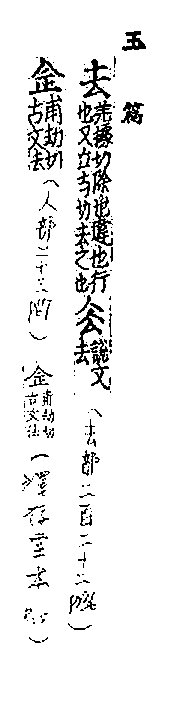 玉篇
去 羌據切除也違也行也又丘与切去之也 厺 說文去 （去部二百二十二
佱 甫劫切古文法（人部二十三 ） 佱 甫劫切古文法（澤存堂本 ）